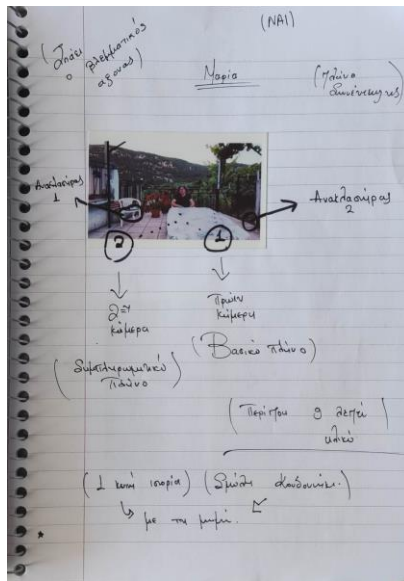 (ΝΑΙ)
(Σπάει
ο βλεμματικός
άξονας)
Μαρία
(Πλάνο
Συνέντευξης)
Ανακλαστήρας
1
Ανακλαστήρας
2
2
1
2η
κάμερα
Πρώτη
κάμερα
(Βασικό πλάνο)
(Συμπληρωματικό
Πλάνο)
(Περίπου 9 λεπτά
υλικό)
(1 κοινή ιστορία)
με τη μαμά.